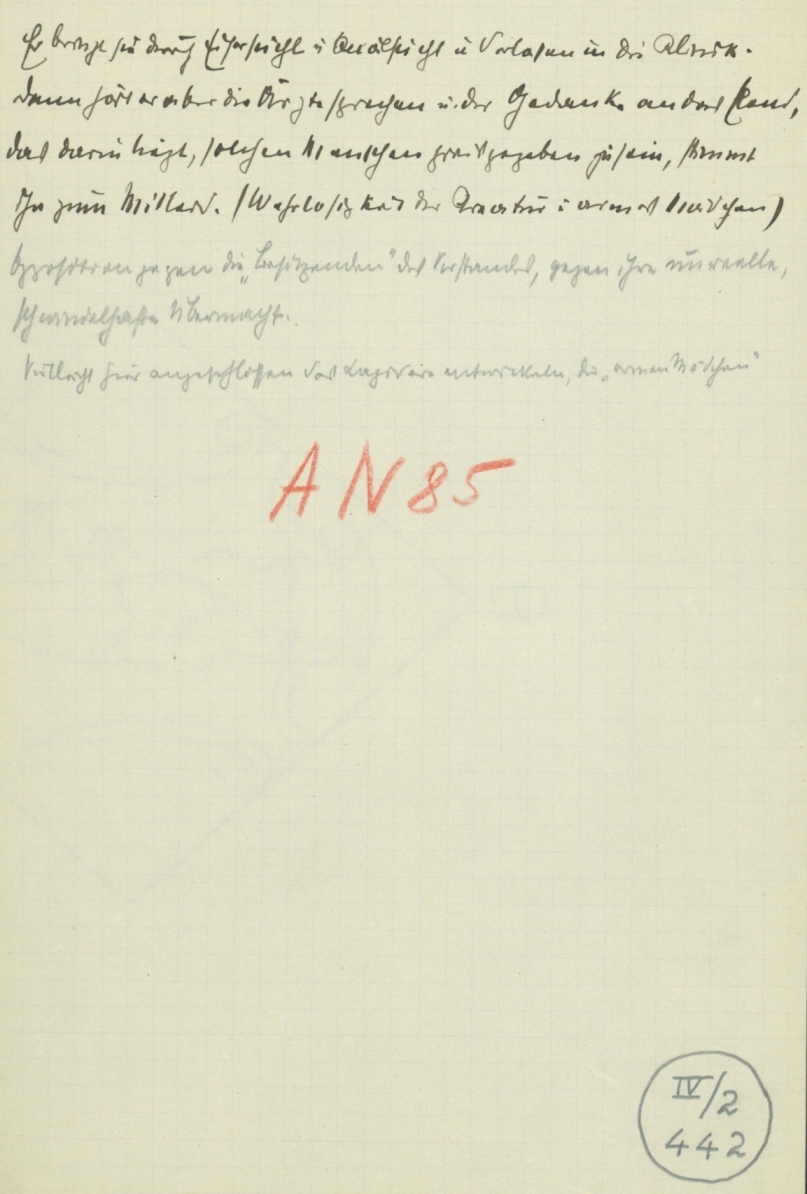 Er bringt sie durch Eifersucht u Quälsucht u Verlassen in die Klinik.
Dann hört er aber die Ärzte sprechen u. der Gedanke an das Elend,
das darin liegt, solchen Menschen preisgegeben zu sein, stimmt
ihn zum Mitleid. (Wehrlosigkeit der Kreatur: armes Mädchen)
Opposition gegen die „Besitzenden" des Verstandes, gegen ihre unreelle,
schwindelhafte Übermacht.
Vielleicht hier angeschlossen das entwickeln, die „armen Mädchen"
AN 85
IV/2
442